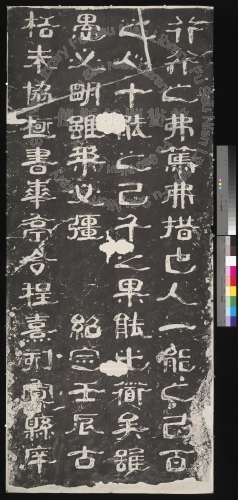 行行之弗篤弗措也人一能之己百
之人十能之己千之果能此衟矣雖
愚必明雖柔必彊 紹定壬辰古
栝朱協極書華亭令程熹刻寘縣庠